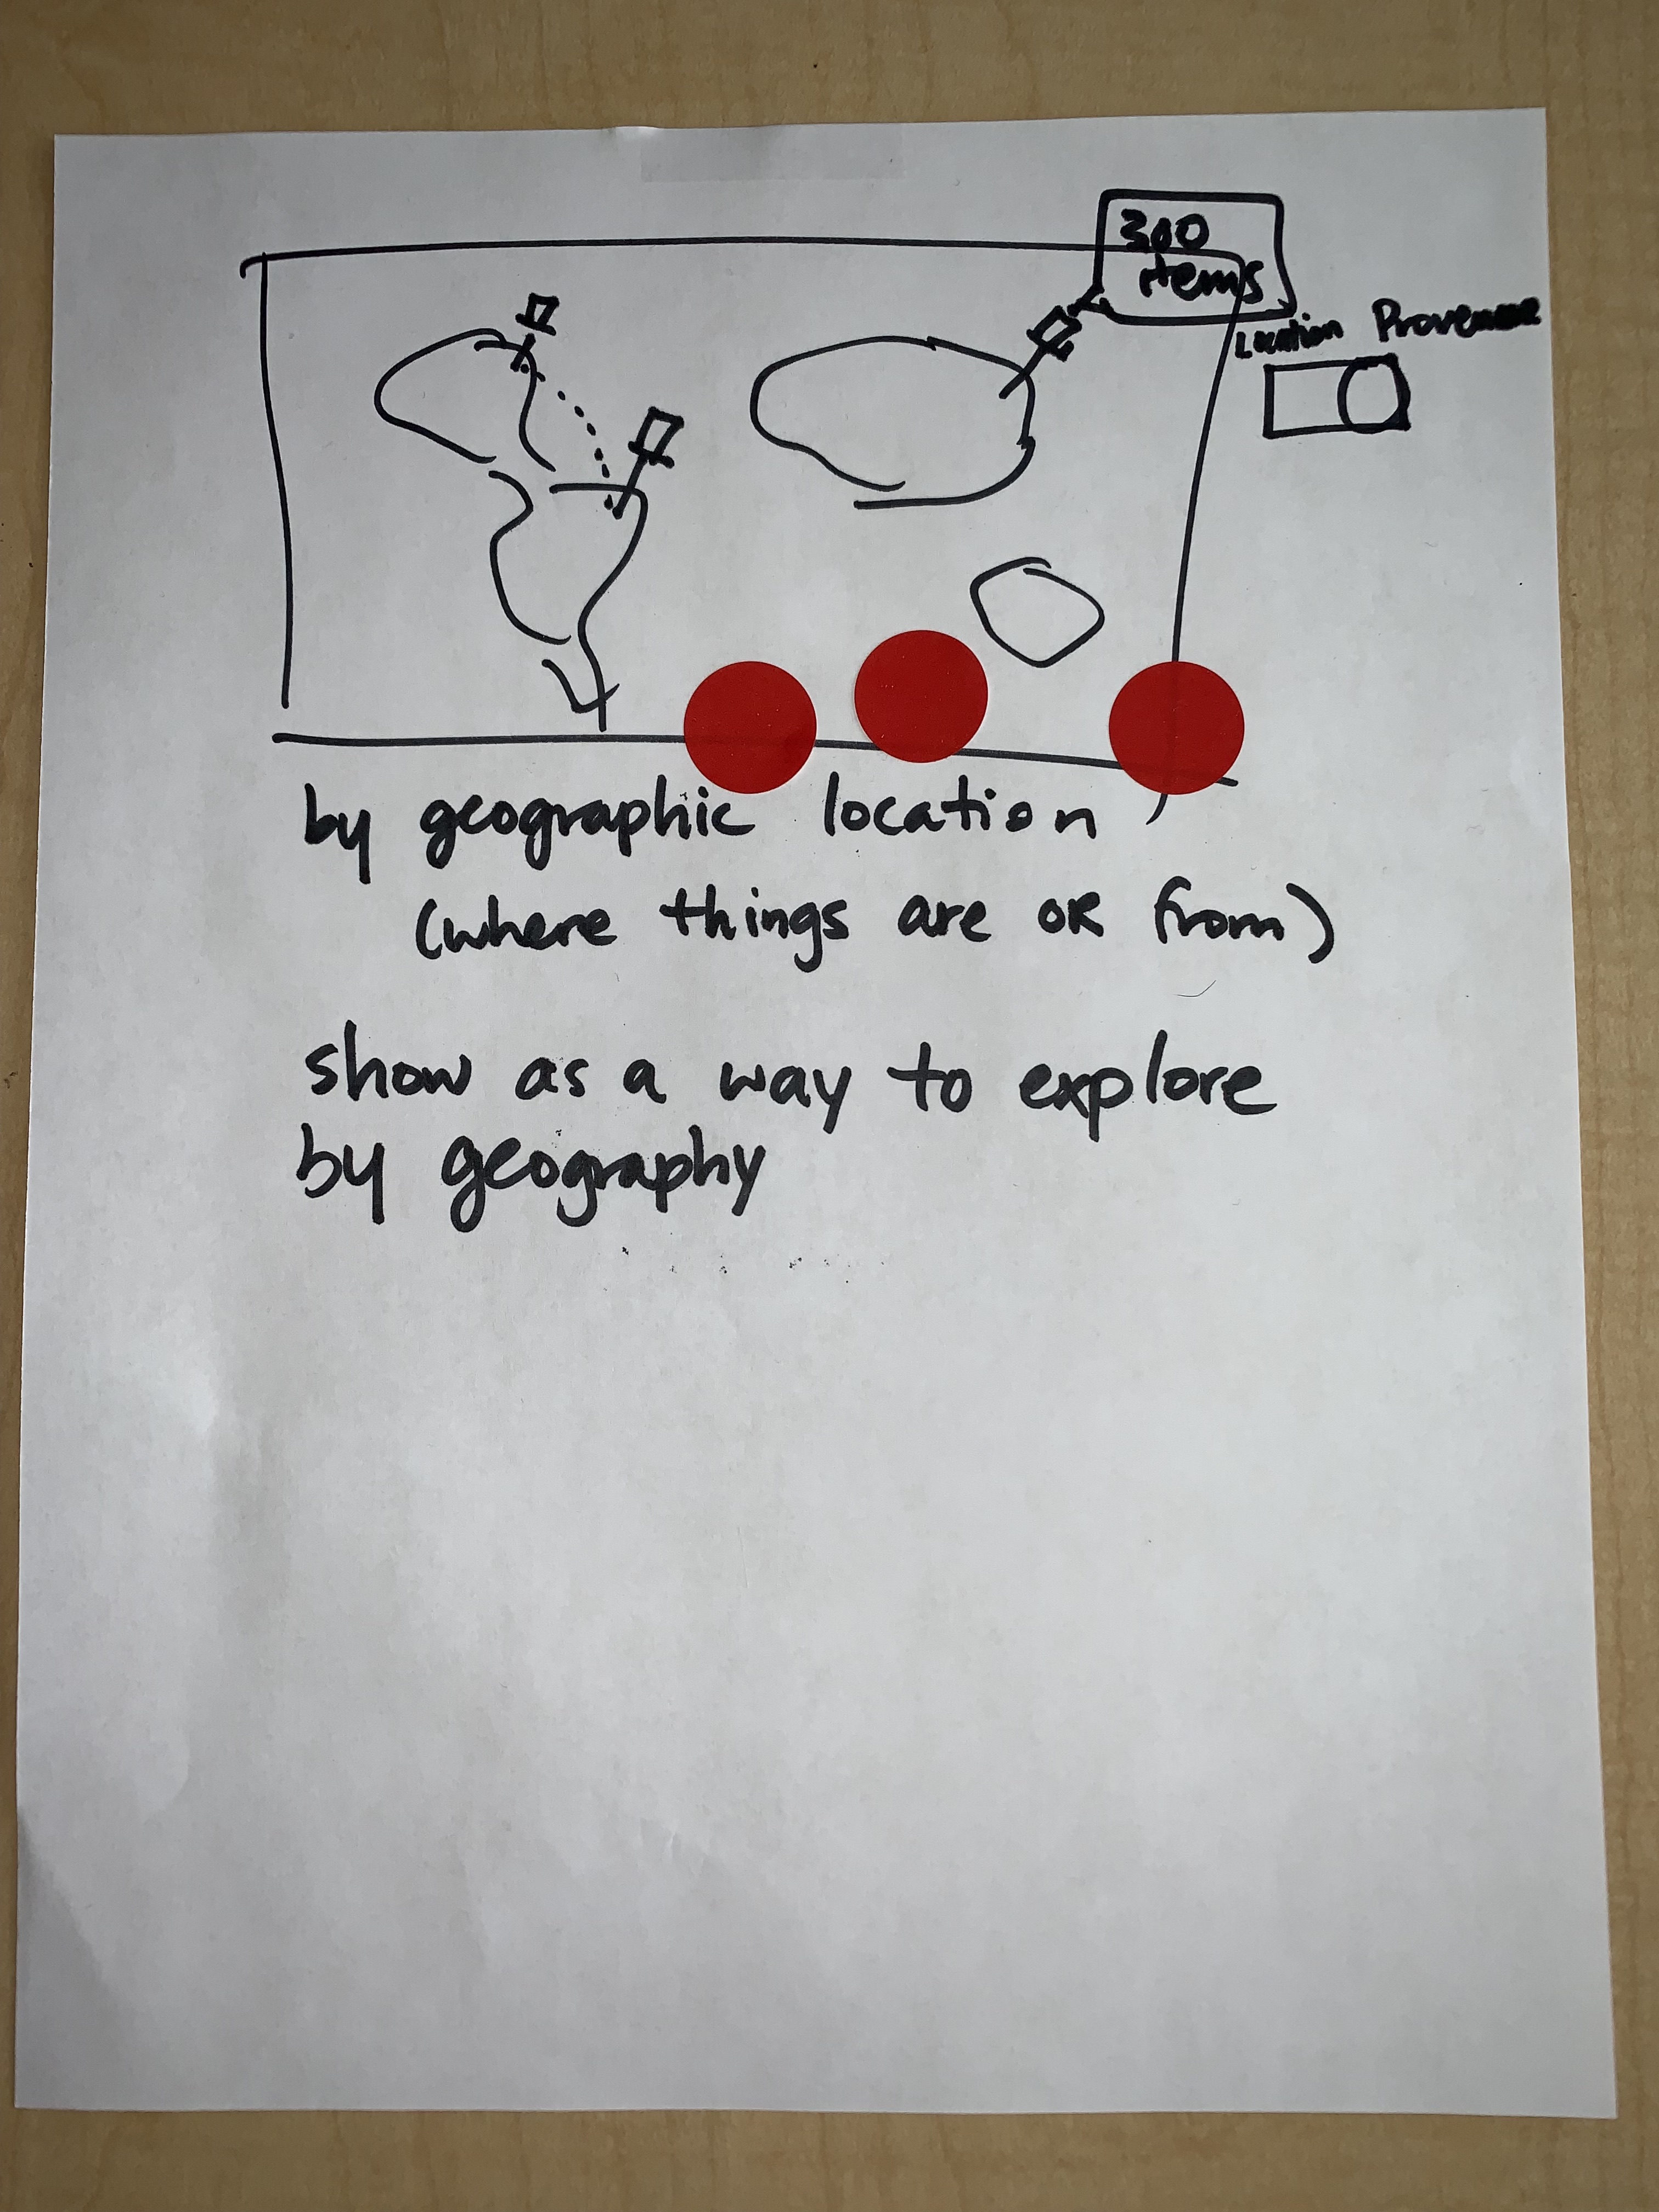 300
items
Location Provenance
by geographic location
(where things are OR from)
show as a way to explore
by geography